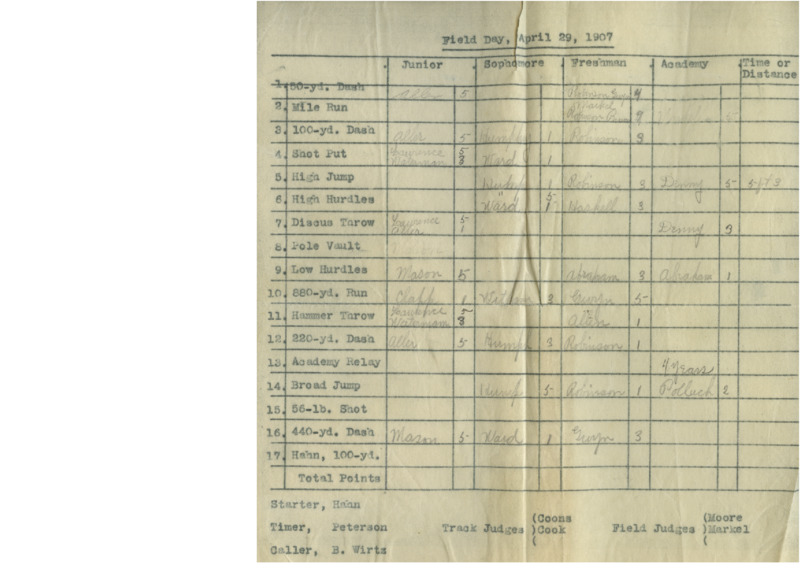 Field Day, April 29, 1907
Junior Sophomore Freshman Academy Time or Distance
1. 50-yd. Dash Aller 5 4
2. Mile Run 5
3. 100-yd. Dash Aller 5 1 Robinson 3
4. Shot Put Lawrence 5 Waterman 3 Ward 1
5. High Jump 1 Robinson 3 Denny 5
6. High Hurdles Ward Haskell 3
7. Discus Throw Lawrence 5 Aller 1 Denny 3
8. Pole Vault
9. Low Hurdles Mason 5 Abraham 3 Abraham 1
10. 880-yd. Run Clapp 1 3 Gwyn 5
11. Hammer Throw Lawrence 5 Waterman 3 Allen 1
12. 220-yd. Dash Aller 5 Hump 3 Robinson 1
13. Academy Relay 4 Years
14. Broad Jump Hump 5 Robinson 1 Pollock 2
15. 56-lb. Shot
16. 440-yd. Dash Mason 5 Ward 1 Gwyn 3
17. Hahn, 100-yd.
Total Points
Starter, Hahn
Timer, Peterson Track Judges (Coons )Cook ( Field Judges (Moore )Markel (
Caller, B. Wirts